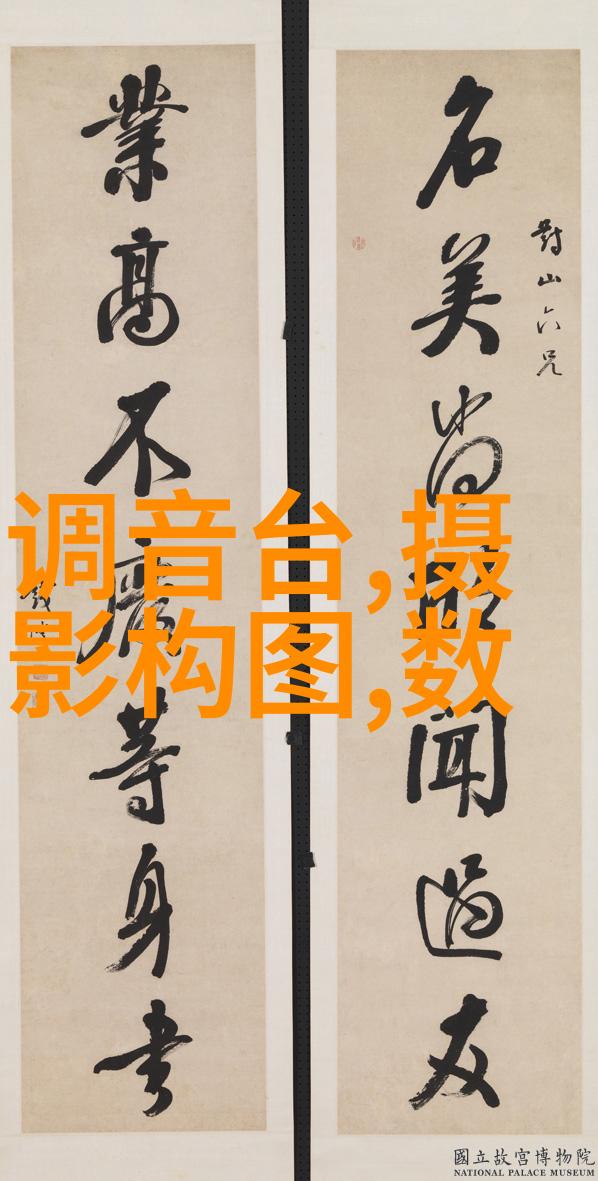 對山六兄
名美尚
聞過友
業高不廢等身书
调音台,摄
影构图,数
國立故宮博物院
NATIONAL PALACE MUSEUM